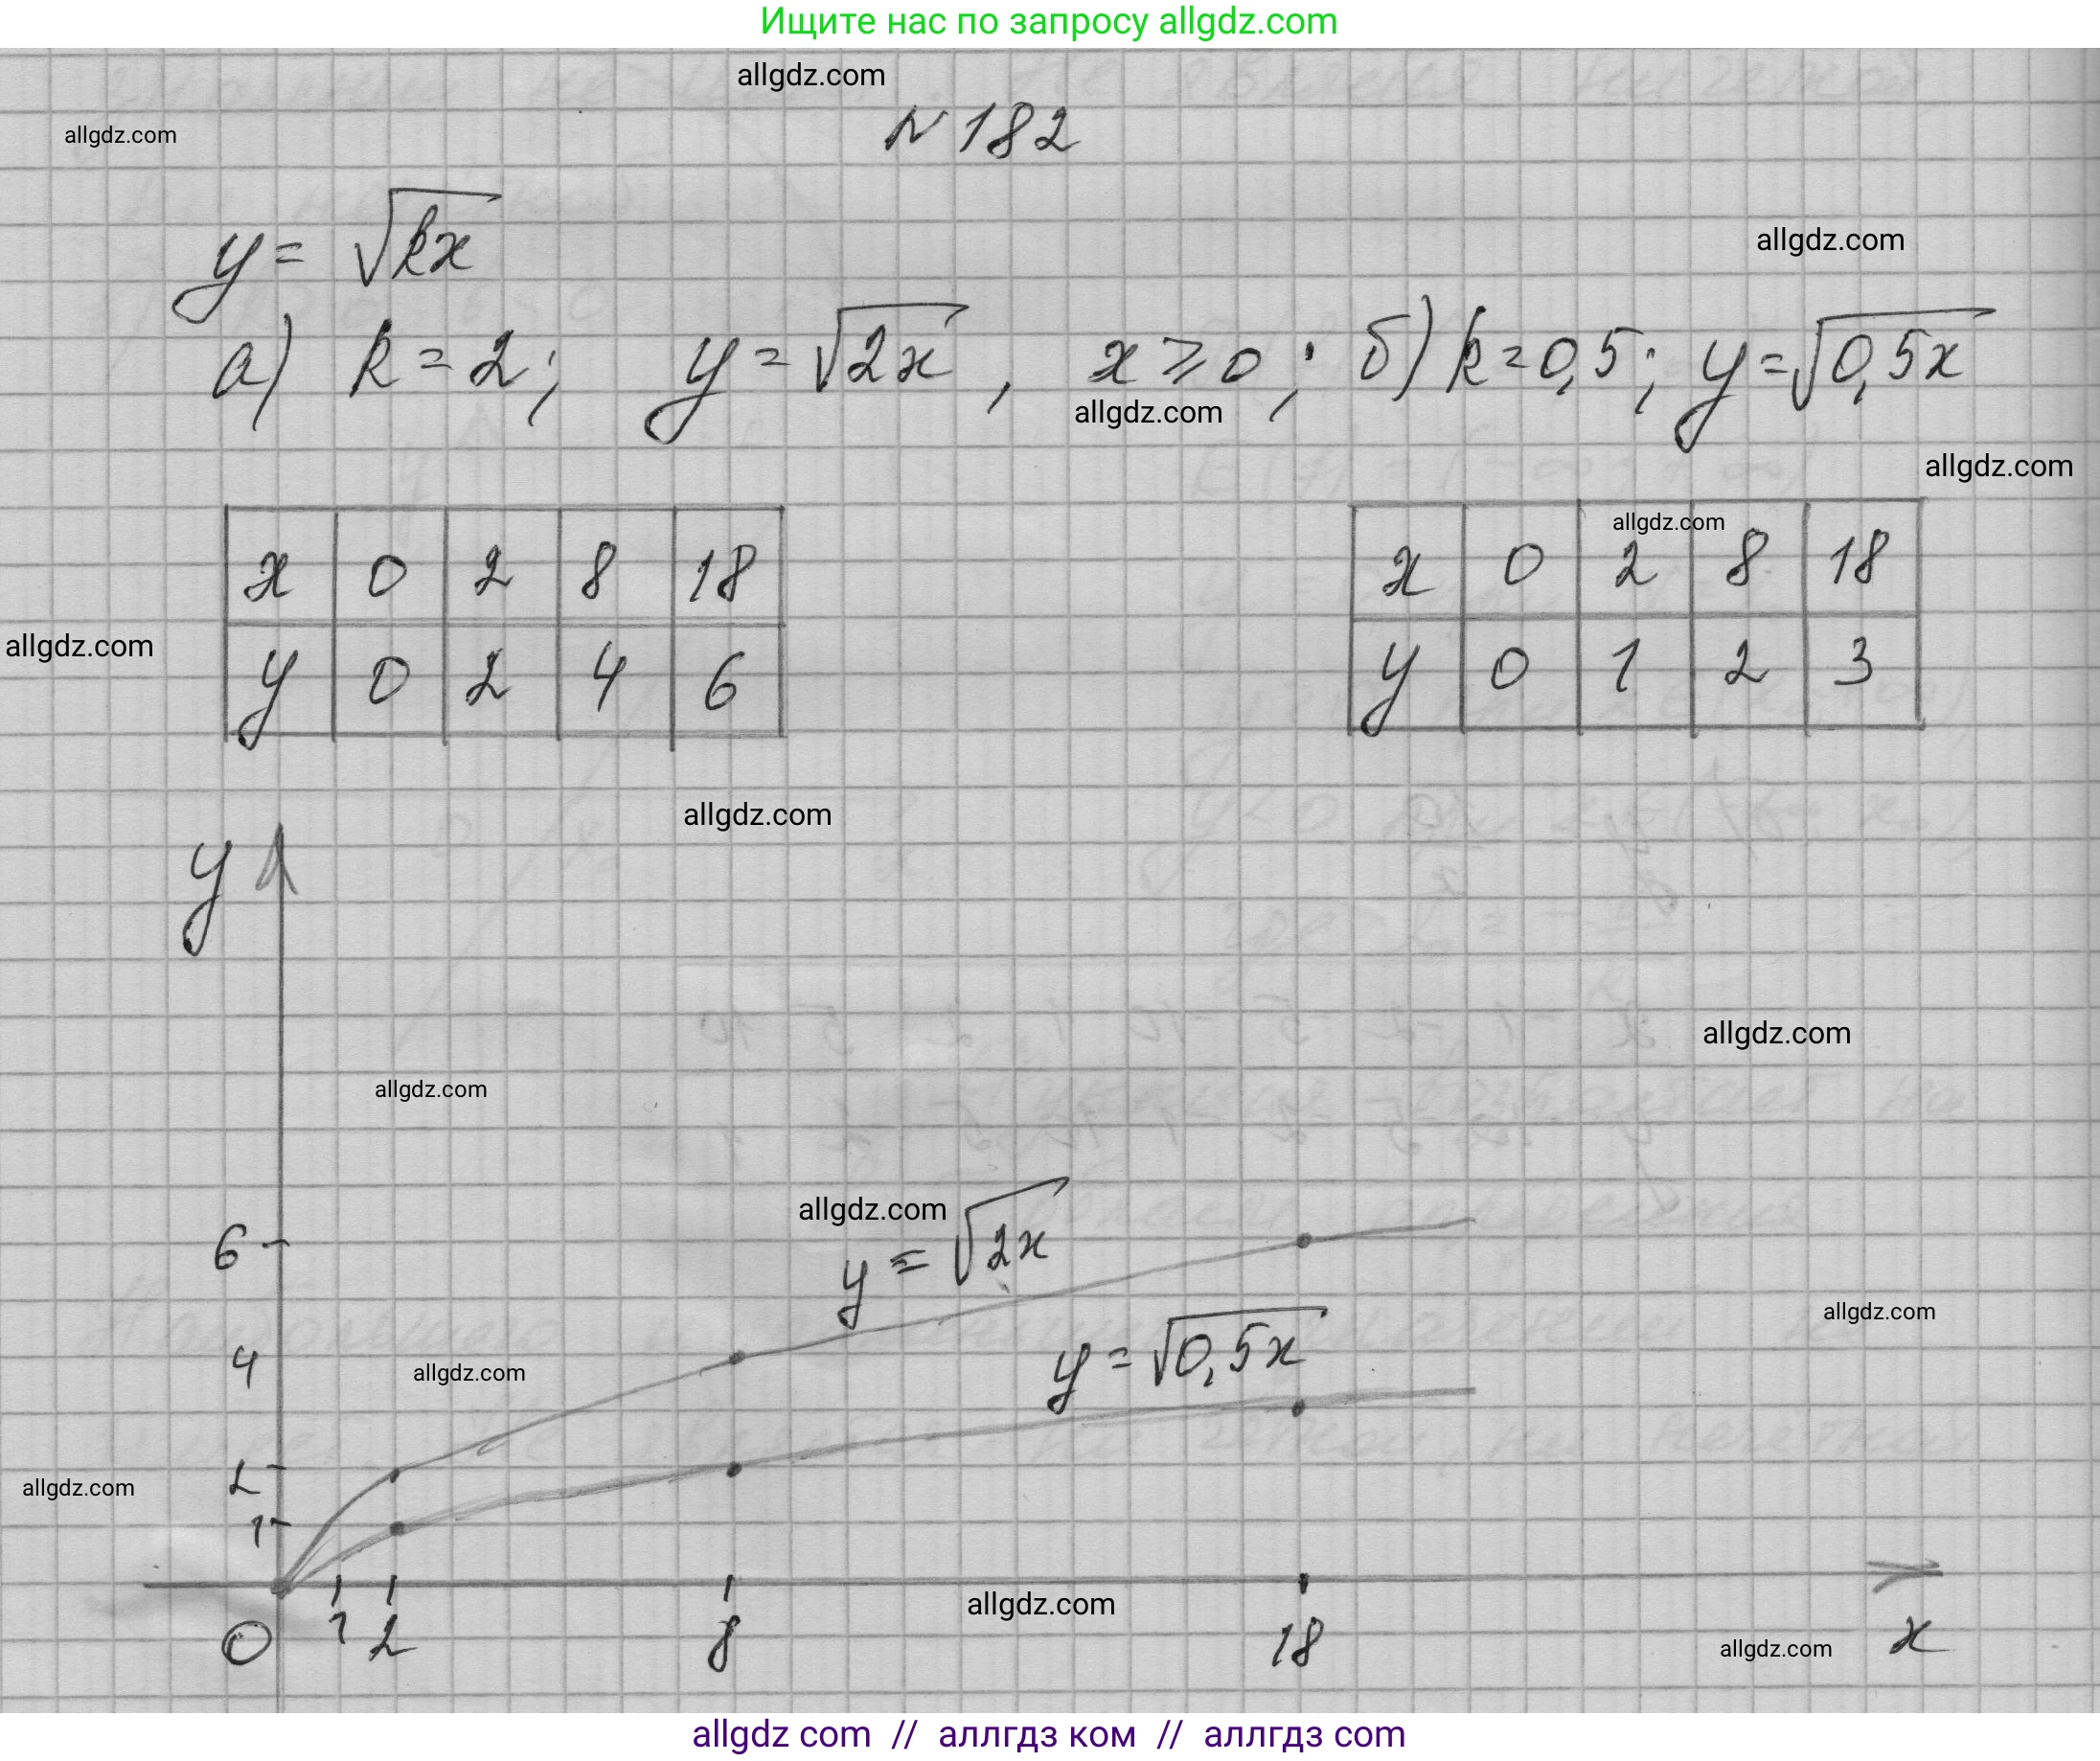 Ищите нас по запросу allgdz.com
allgdz.com
allgdz.com
№ 182
y = √kx
allgdz.com
а) k = 2; y = √2x, x ⩾ 0; б) k = 0,5; y = √0,5x
allgdz.com
allgdz.com
allgdz.com
x 0 2 8 18
x 0 2 8 18
allgdz.com
y 0 2 4 6
y 0 1 2 3
allgdz.com
y
allgdz.com
allgdz.com
allgdz.com
6
y = √2x
allgdz.com
4
allgdz.com
y = √0,5x
allgdz.com
2
1
allgdz.com
0 1 2 8 18 x
allgdz.com
allgdz com // аллгдз ком // аллгдз com